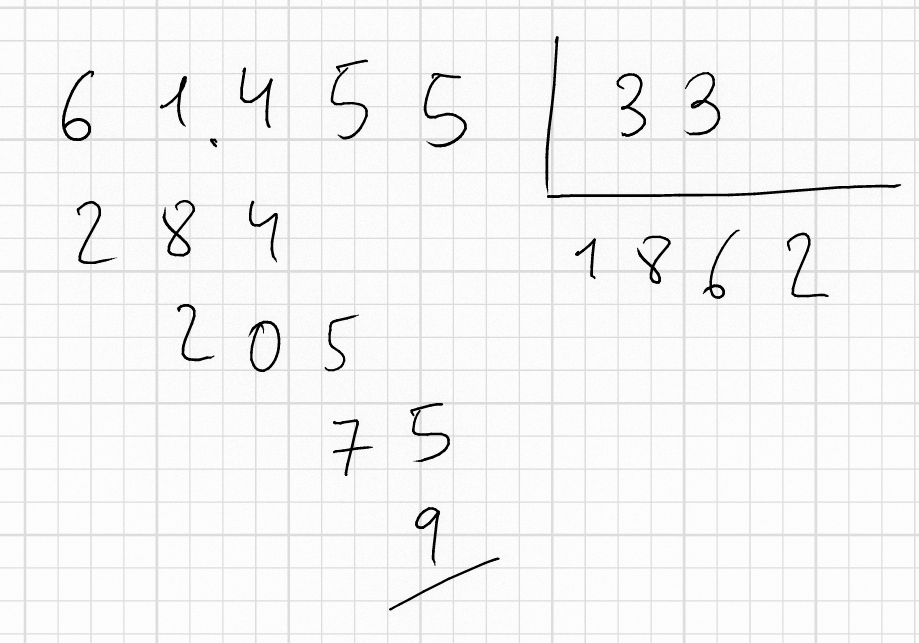 61.455 33
284 1862
205
75
9